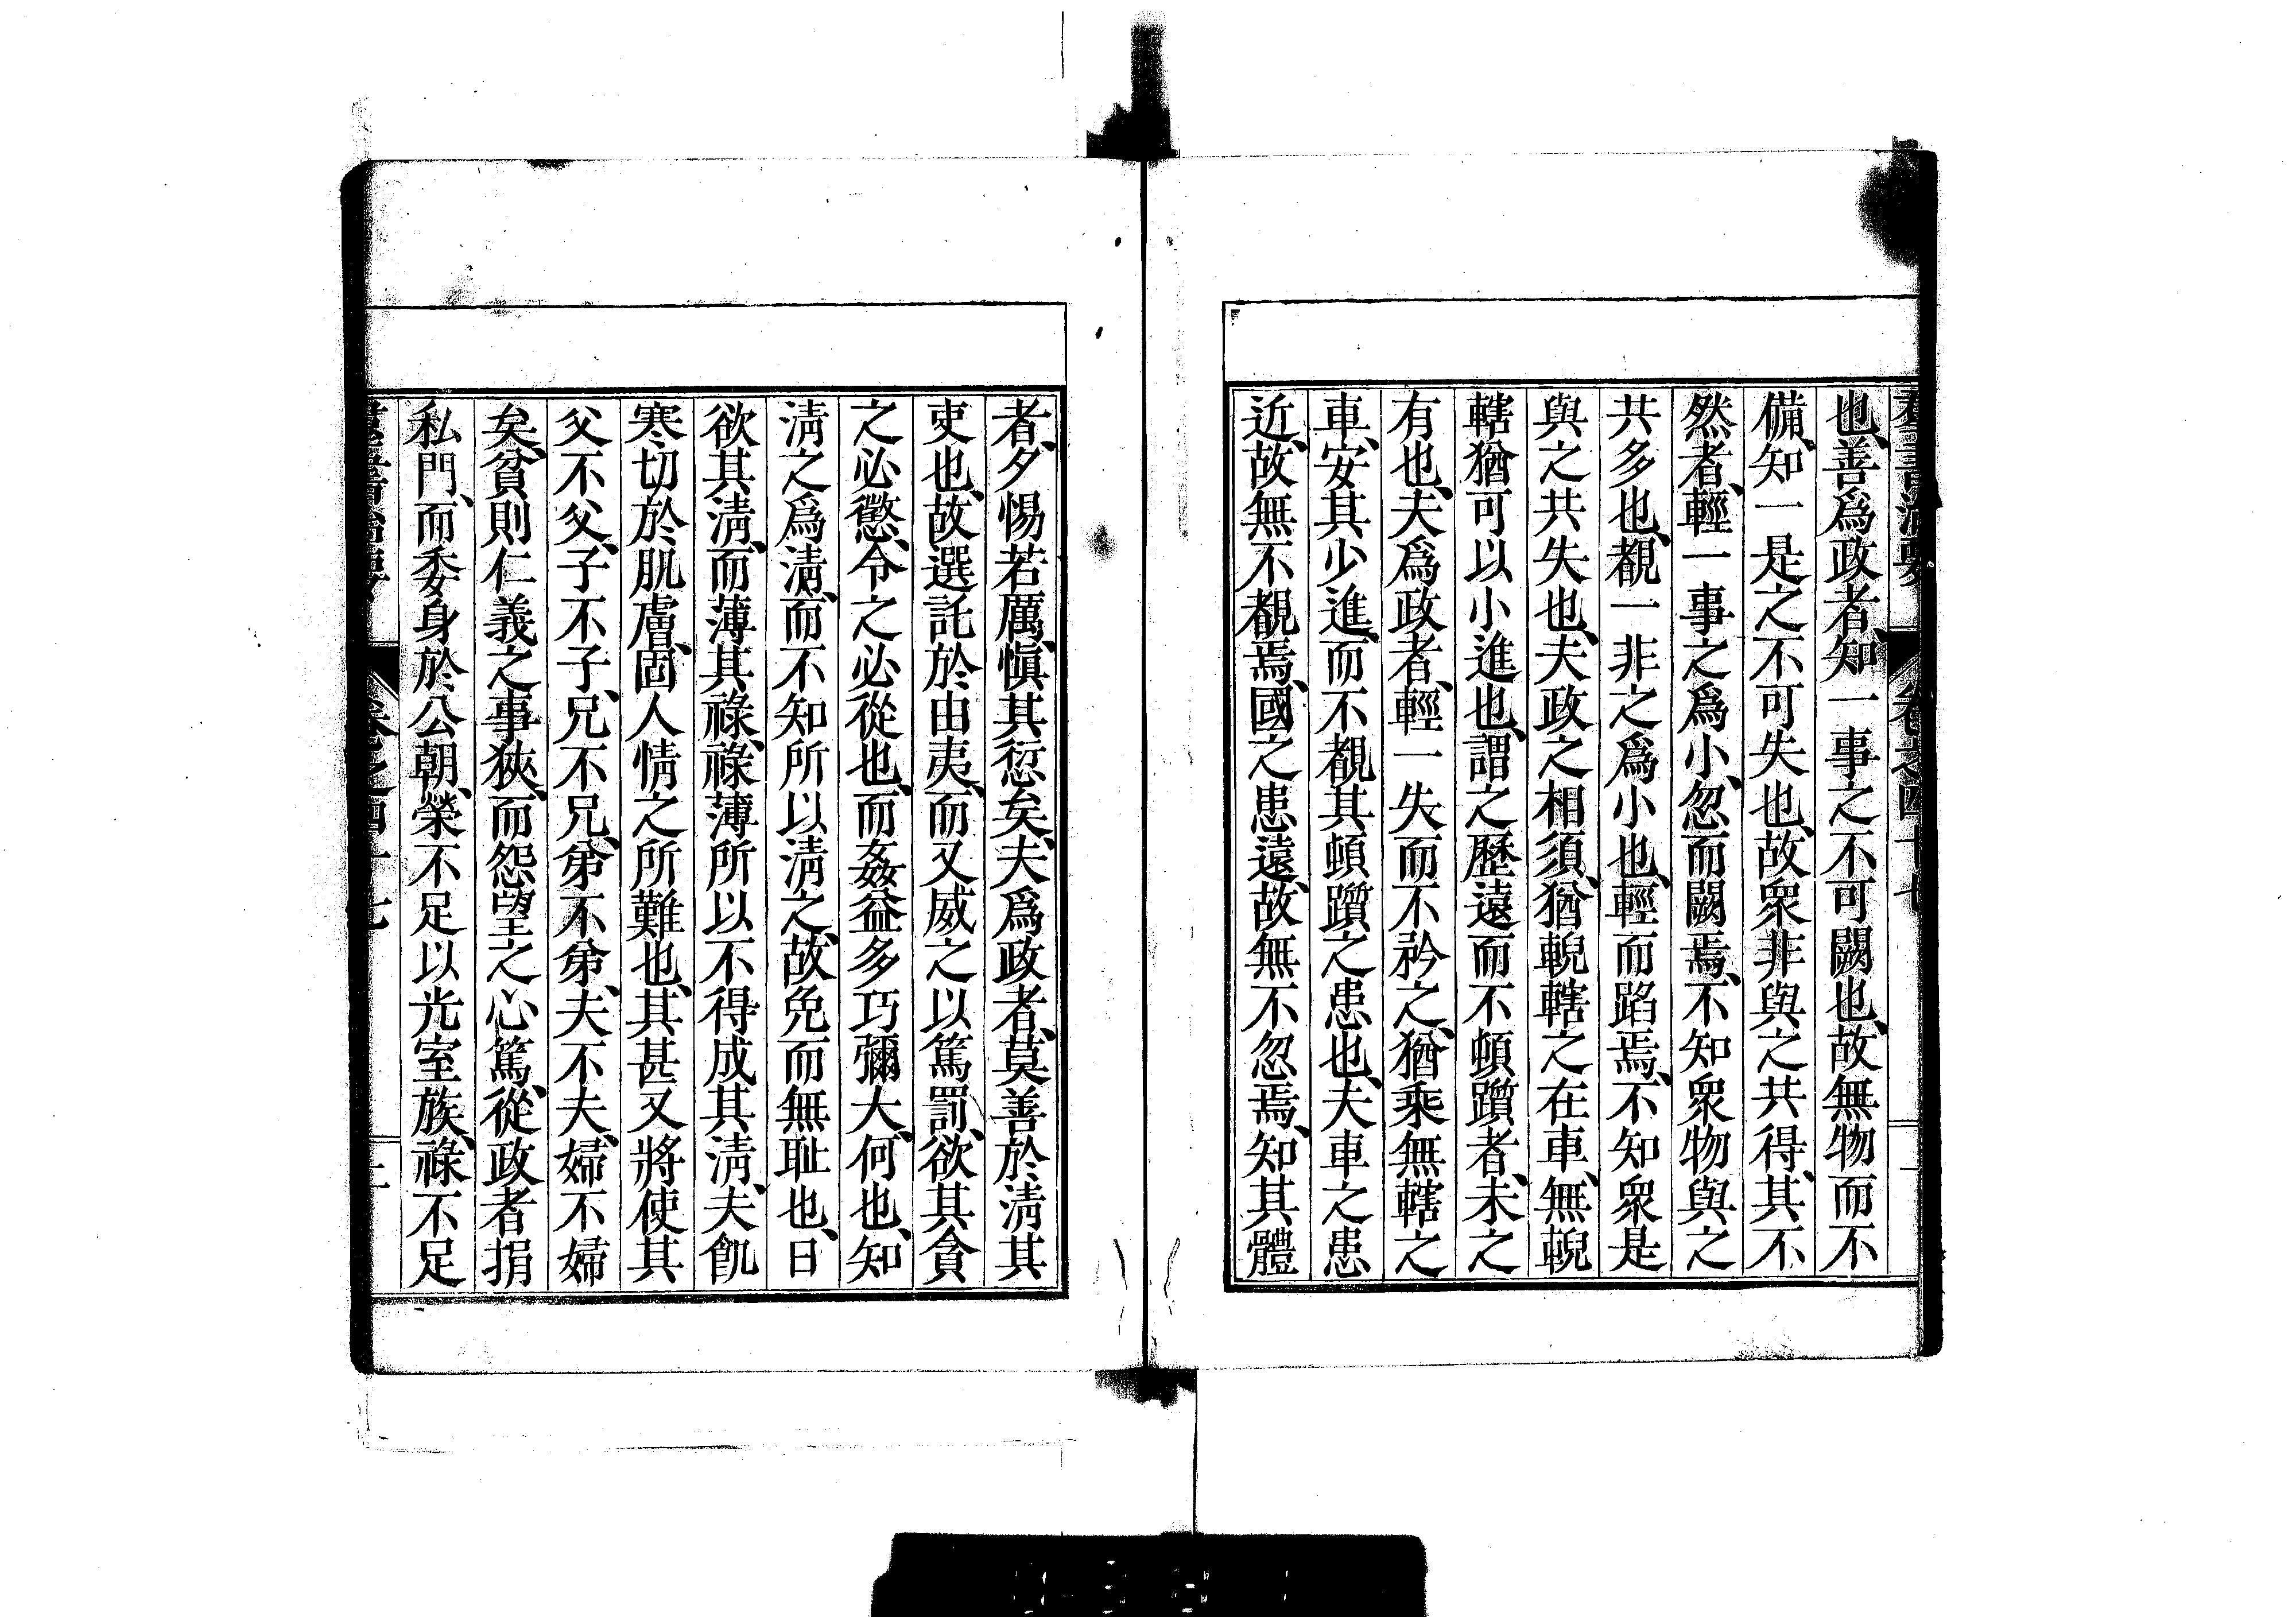 群書治要 卷之四十七
也、善爲政者、知一事之不可闕也、故無物而不
備、知一是之不可失也、故衆非與之共得、其不
然者、輕一事之爲小、忽而闕焉、不知衆物與之
共多也、覩一非之爲小也、輕而蹈焉、不知衆是
與之共失也、夫政之相須、猶輗轄之在車、無輗
轄猶可以小進也、謂之歷遠而不頓躓者、未之
有也、夫爲政者、輕一失而不矜之、猶乘無轄之
車、安其少進、而不覩其頓躓之患也、夫車之患
近、故無不覩焉、國之患遠、故無不忽焉、知其體
者、夕惕若厲、愼其愆矣、夫爲政者、莫善於淸其
吏也、故選託於由夷、而又威之以篤罰、欲其貪
之必懲、令之必從也、而姦益多巧彌大、何也、知
淸之爲淸、而不知所以淸之、故免而無耻也、日
欲其淸、而薄其祿、祿薄所以不得成其淸、夫飢
寒切於肌膚、固人情之所難也、其甚又將使其
父不父、子不子、兄不兄、弟不弟、夫不夫、婦不婦
矣、貧則仁義之事狹、而怨望之心篤、從政者捐
私門、而委身於公朝、榮不足以光室族、祿不足
群書治要 卷之四十七